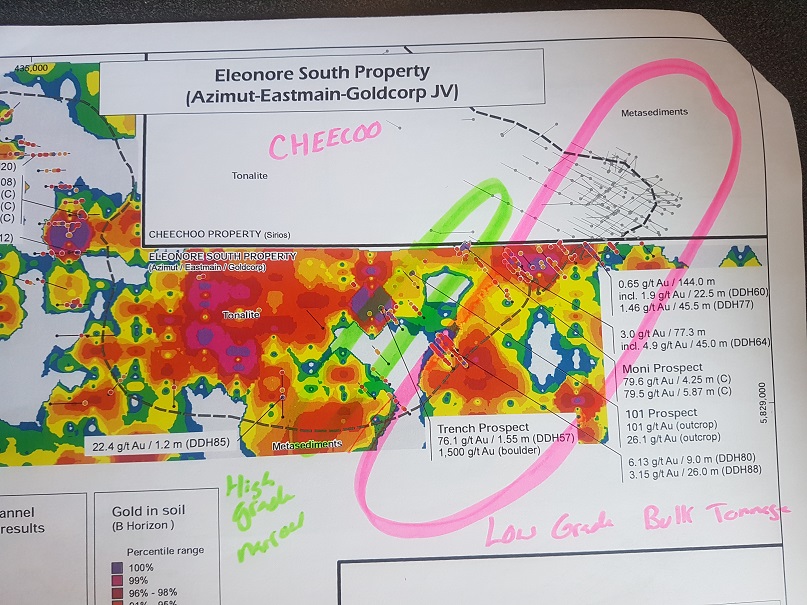 435,000
Eleonore South Property
(Azimut-Eastmain-Goldcorp JV)
CHEECOO
Metasediments
Tonalite
20)
08)
(C)
(C)
(C)
12)
CHEECHOO PROPERTY (Sirios)
ELEONORE SOUTH PROPERTY
(Azimut / Eastmain / Goldcorp)
Tonalite
0.65 g/t Au / 144.0 m
incl. 1.9 g/t Au / 22.5 m (DDH60)
1.46 g/t Au / 45.5 m (DDH77)
3.0 g/t Au / 77.3 m
incl. 4.9 g/t Au / 45.0 m (DDH64)
Moni Prospect
79.6 g/t Au / 4.25 m (C)
79.5 g/t Au / 5.87 m (C)
101 Prospect
101 g/t Au (outcrop)
26.1 g/t Au (outcrop)
6.13 g/t Au / 9.0 m (DDH80)
3.15 g/t Au / 26.0 m (DDH88)
5,829,000
Trench Prospect
76.1 g/t Au / 1.55 m (DDH57)
1,500 g/t Au (boulder)
22.4 g/t Au / 1.2 m (DDH85)
Metasediments
High
grade
narrow
Low Grade Bulk Tonnage
annel
results
Gold in soil
(B Horizon )
Percentile range
100%
99%
96% - 98%
91% - 95%